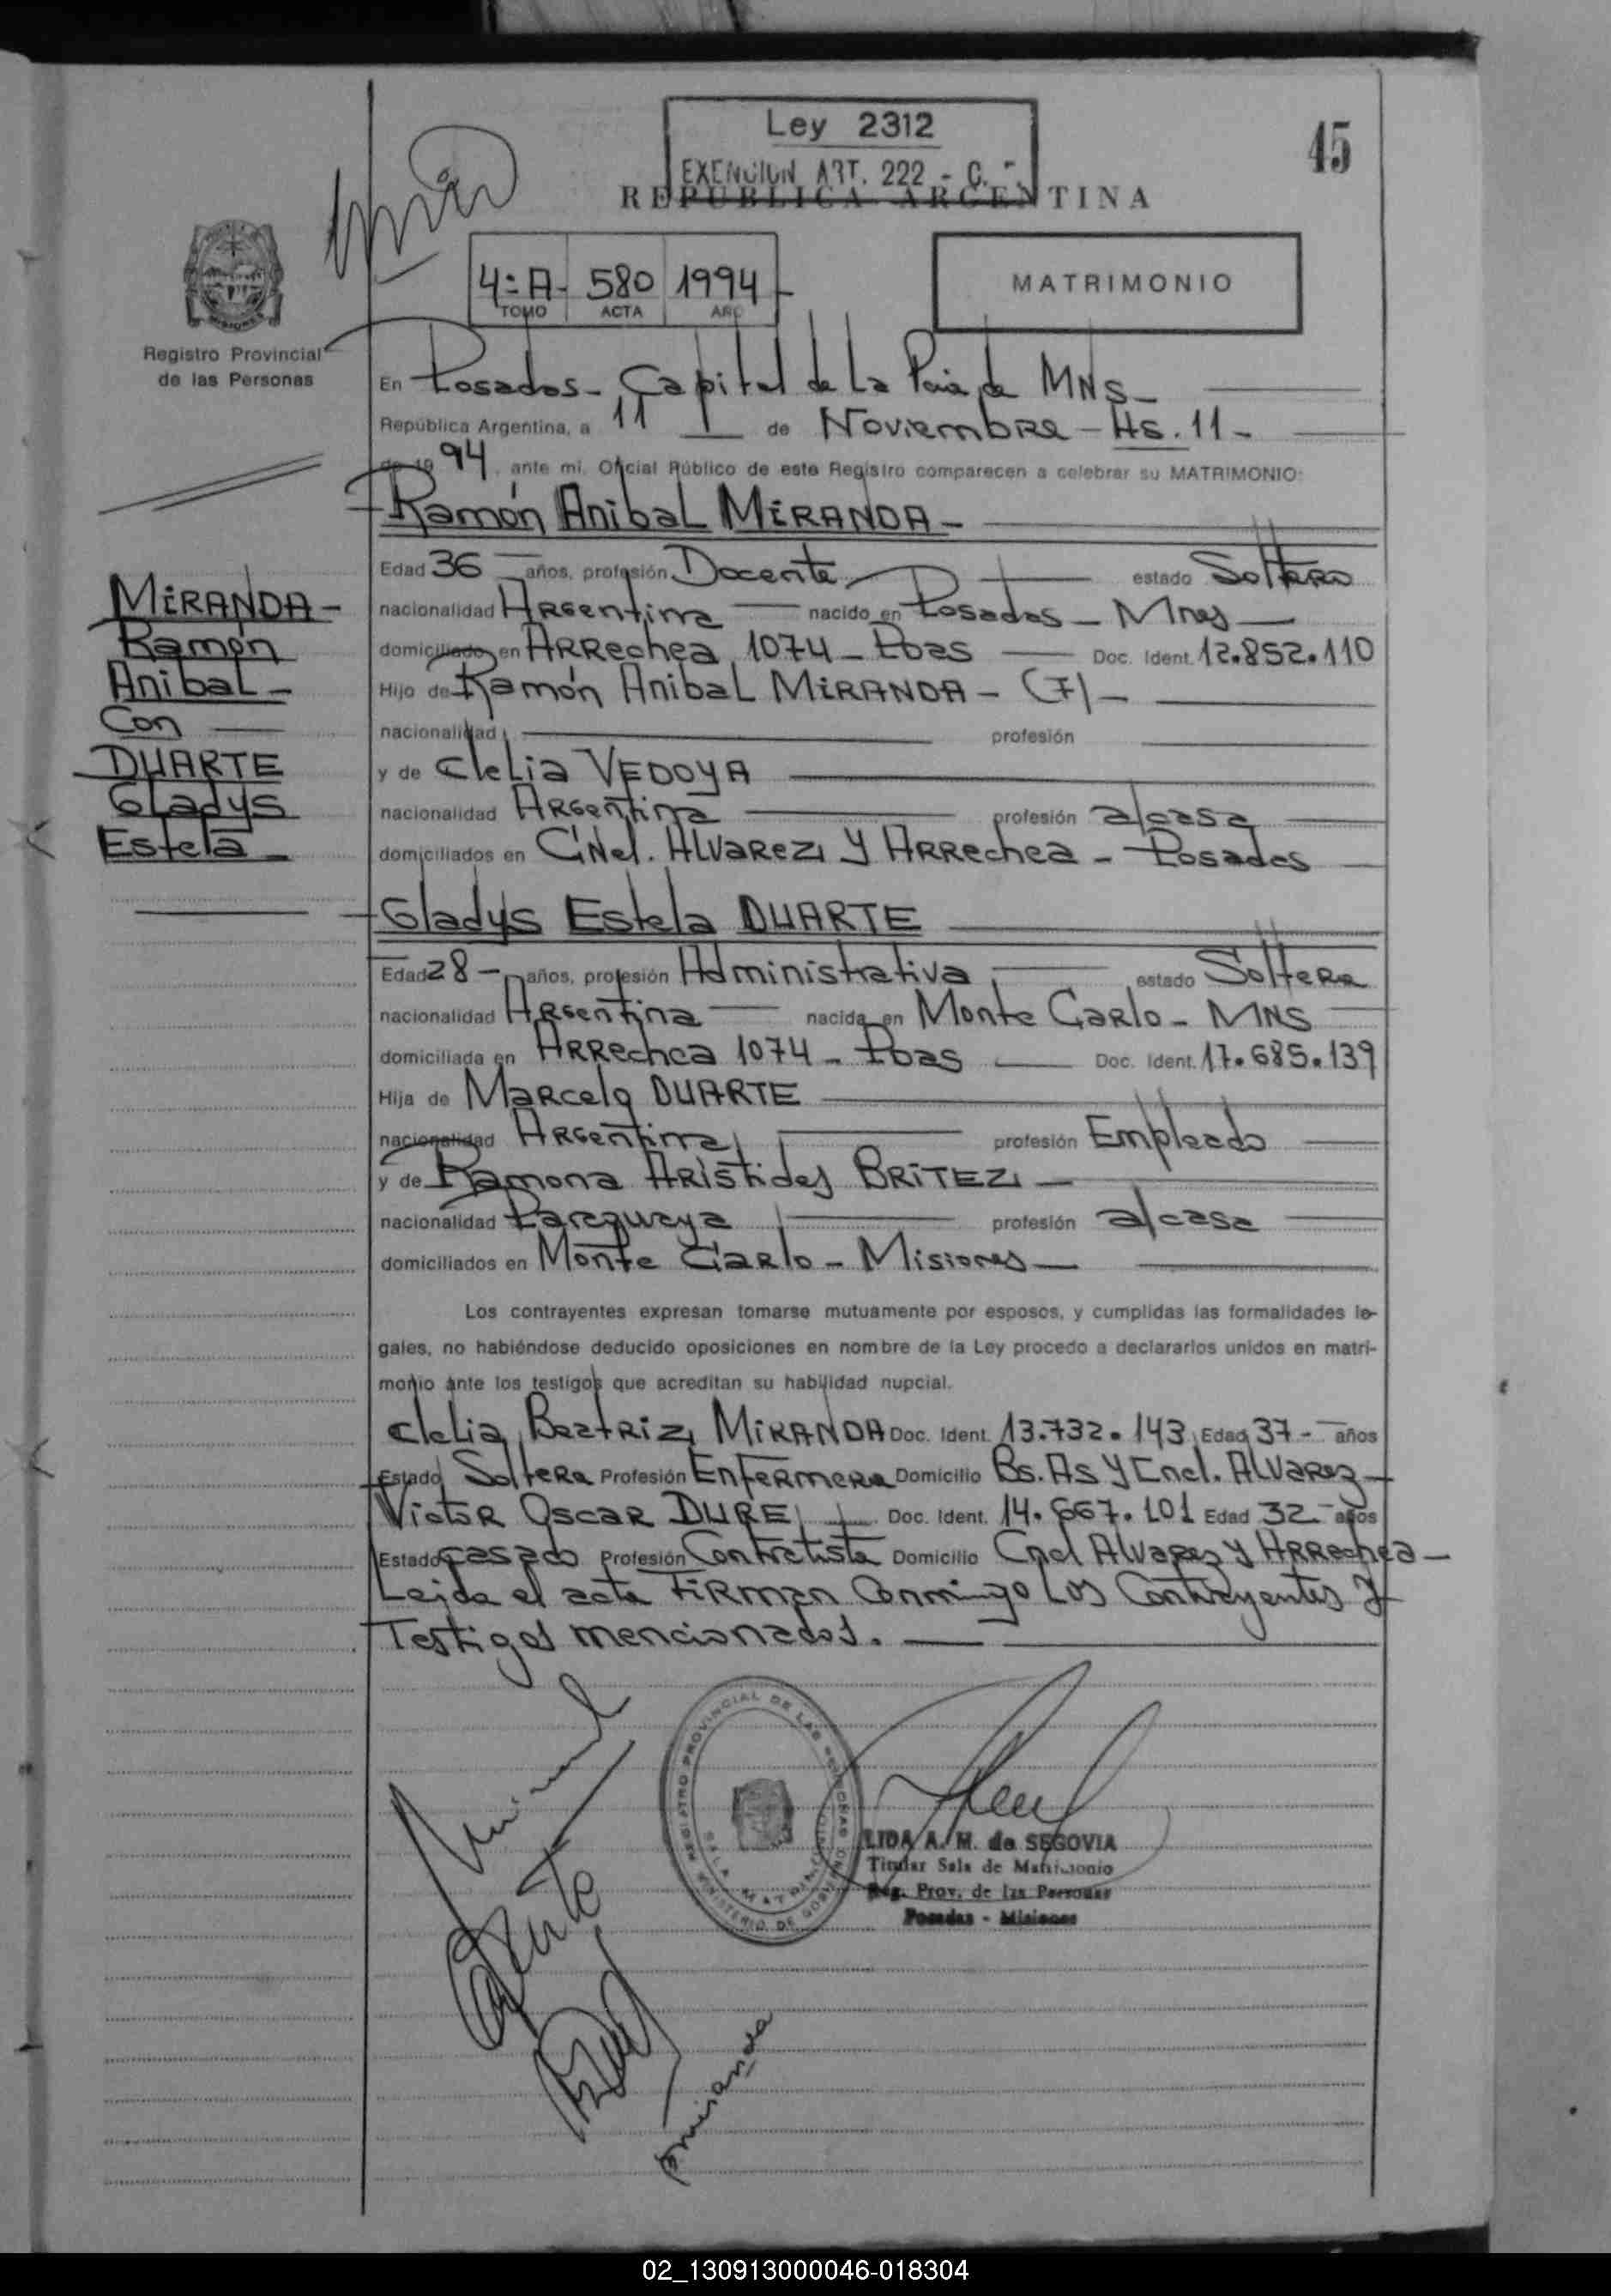 Ley 2312
EXENCION ART. 222 - C.
45
REPUBLICA ARGENTINA
4ª A - 580 1994
TOMO ACTA AÑO
MATRIMONIO
Registro Provincial
de las Personas
En Posadas - Capital de La Pcia de MNS -
República Argentina, a 11 de Noviembre - Hs. 11 -
de 19 94, ante mi, Oficial Público de este Registro comparecen a celebrar su MATRIMONIO:
Ramón Anibal MiRANDA -
Edad 36 años, profesión Docente estado Soltero
nacionalidad Argentina nacido en Posadas - Mnes
domiciliado en Arrechea 1074 - Pdas Doc. Ident. 12.852.110
Hijo de Ramón Anibal MiRANDA - (F) -
nacionalidad profesión
y de Clelia VEDOYA
nacionalidad Argentina profesión a/casa
domiciliados en C/Nel. Alvarez y Arrechea - Posadas
MiRANDA -
Ramón
Anibal -
Con
DUARTE
Gladys
Estela -
Gladys Estela DUARTE
Edad 28 - años, profesión Administrativa estado Soltera
nacionalidad Argentina nacida en Monte Carlo - MNS
domiciliada en Arrechea 1074 - Pdas Doc. Ident. 17.685.139
Hija de Marcelo DUARTE
nacionalidad Argentina profesión Empleado
y de Ramona Aristides BRiTEZ -
nacionalidad Paraguaya profesión a/casa
domiciliados en Monte Carlo - Misiones
Los contrayentes expresan tomarse mutuamente por esposos, y cumplidas las formalidades le-
gales, no habiéndose deducido oposiciones en nombre de la Ley procedo a declararlos unidos en matri-
monio ante los testigos que acreditan su habilidad nupcial.
Clelia Beatriz MiRANDA Doc. Ident. 13.732.143 Edad 37 - años
Estado Soltera Profesión Enfermera Domicilio Bs. As y Cnel. Alvarez
Victor Oscar DURE Doc. Ident. 14.667.101 Edad 32 - años
Estado casado Profesión Contratista Domicilio Cnel Alvarez y Arrechea -
Leida el acta firman Conmigo Los Contrayentes y
Testigos mencionados.
REGISTRO PROVINCIAL DE LAS PERSONAS
SALA MATRIMONIO
MINISTERIO DE GOBIERNO
LIDA A. M. de SEGOVIA
Titular Sala de Matrimonio
Reg. Prov. de las Personas
Posadas - Misiones
Miranda
02_130913000046-018304